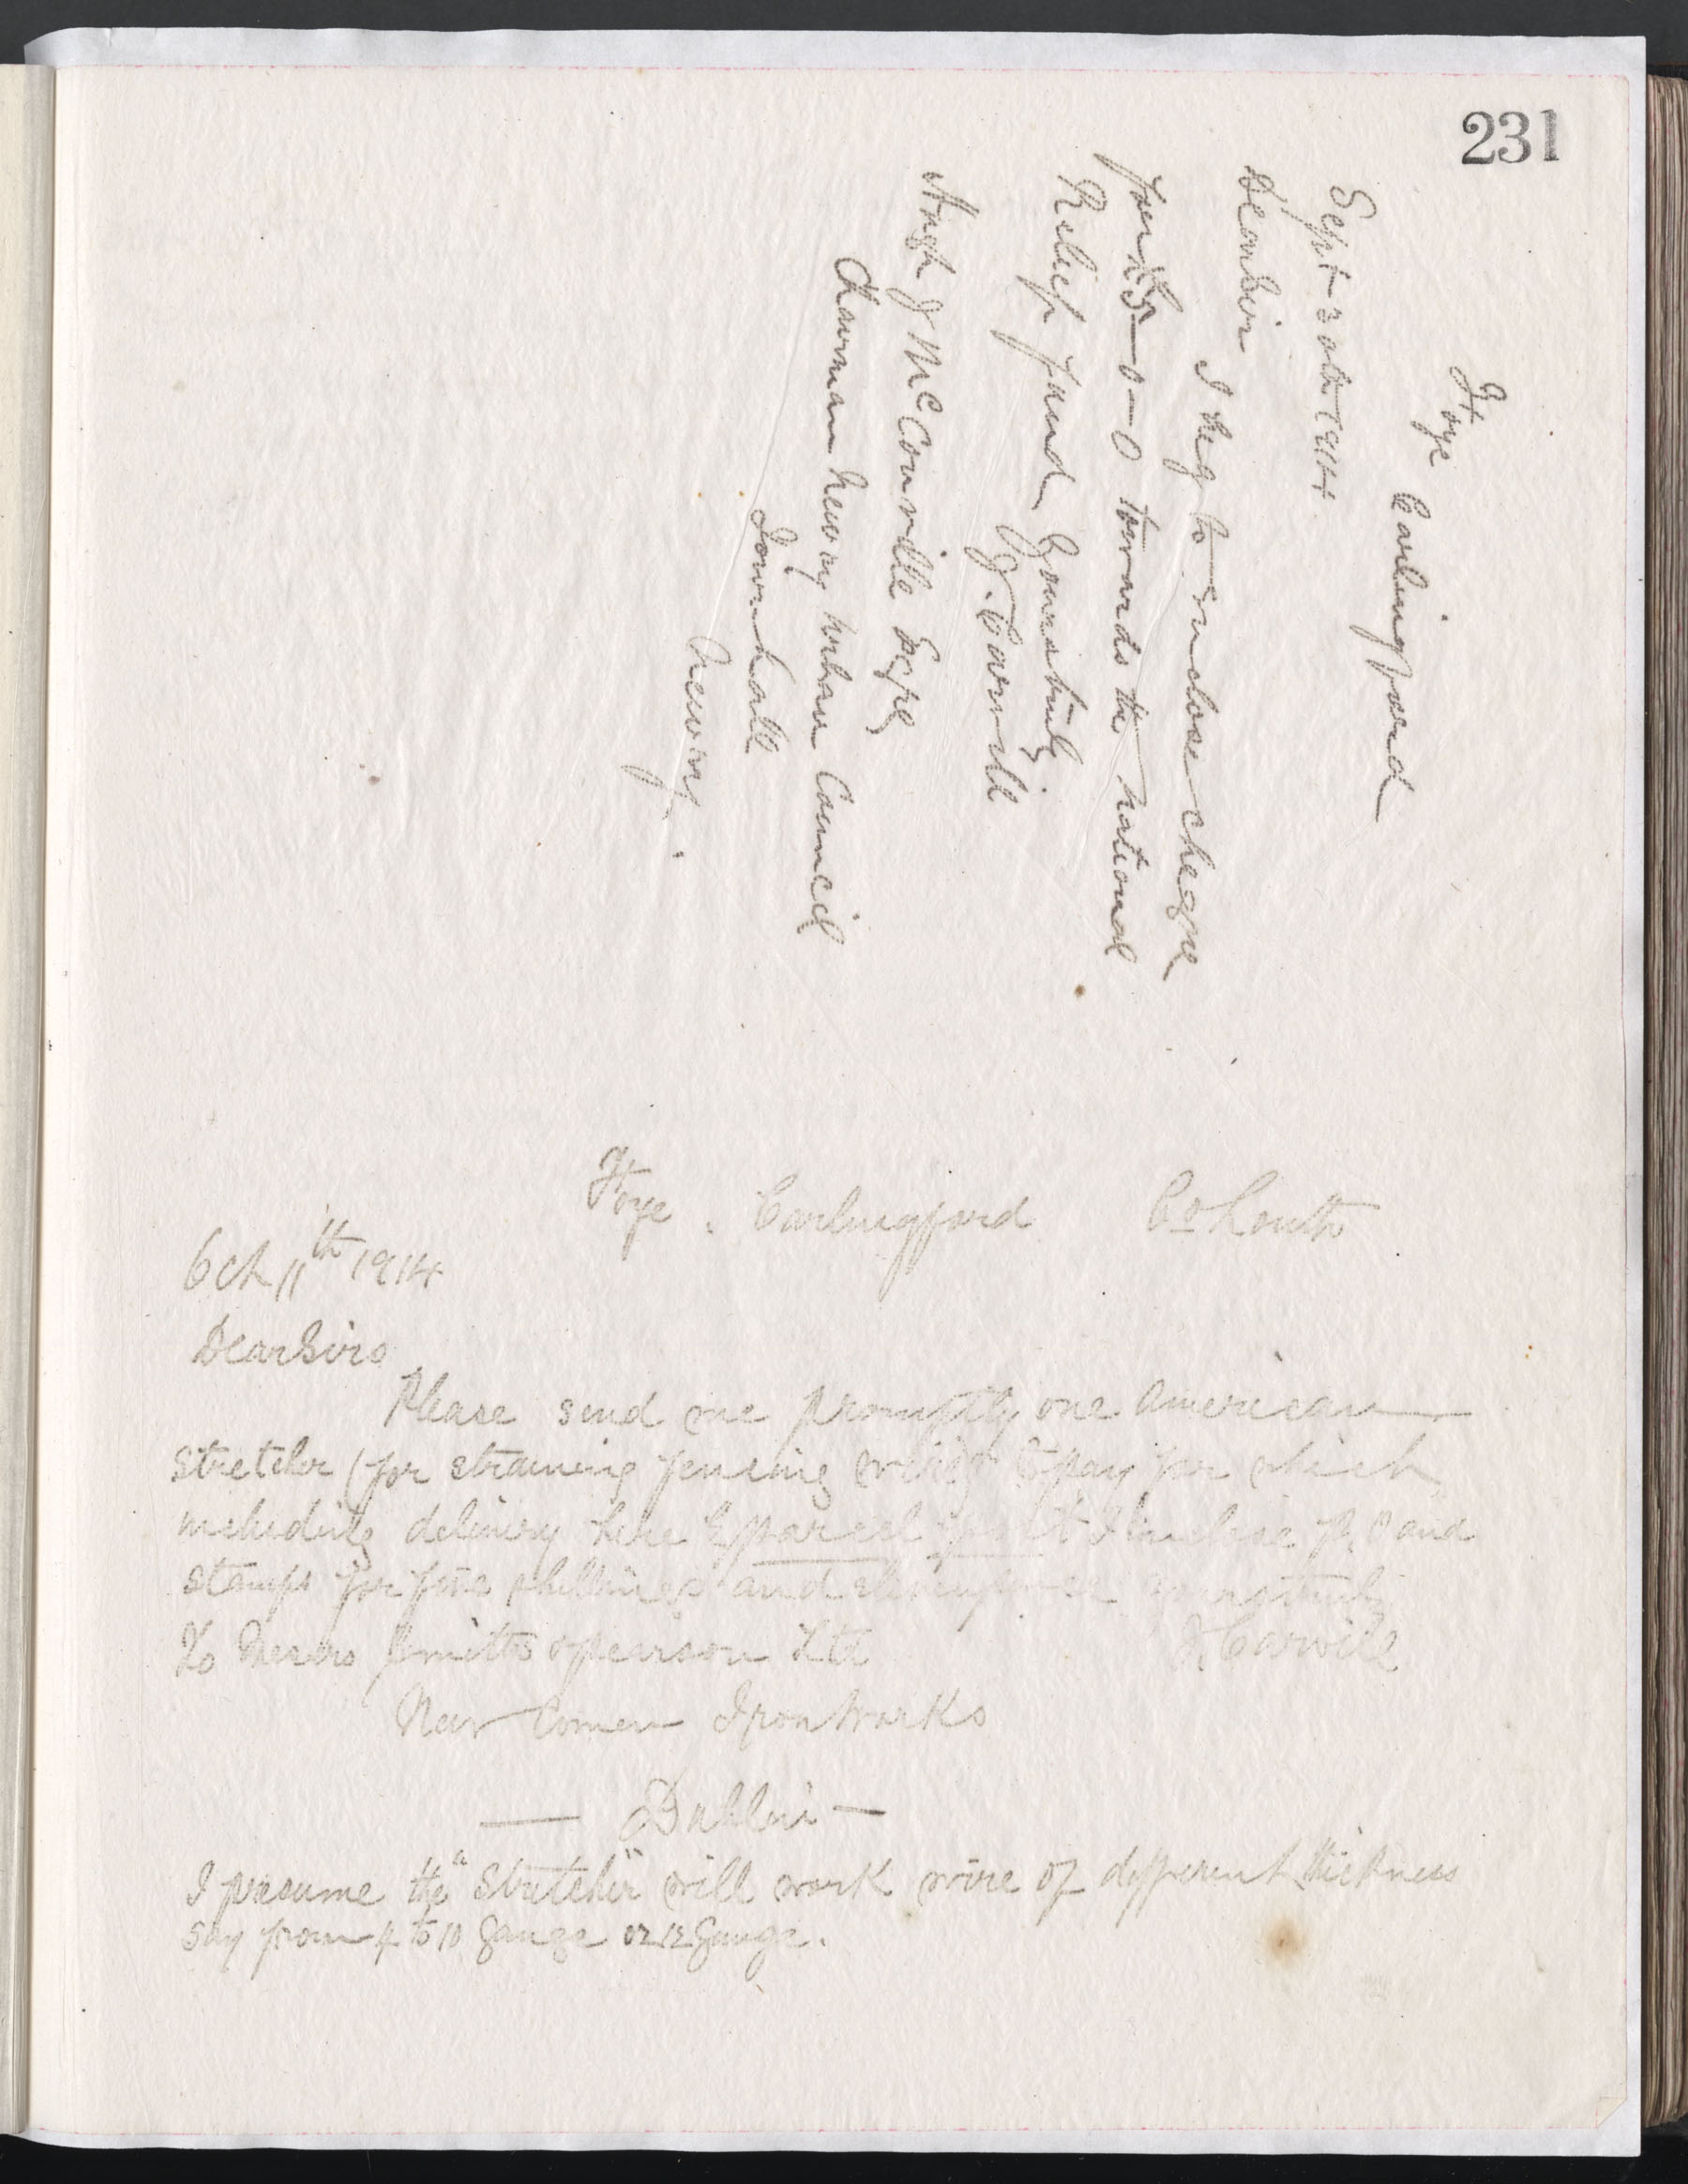 231
Ffoye Carlingford
Sept 30th 1914
Dear Sir
I beg to enclose cheque
for £5-0-0 towards the national
Relief fund yours truly
J. Carvill
Hugh J McConville Esqre
Chairman Newry Urban Council
Town hall
Newry.
Ffoye. Carlingford Co Louth
Oct 11th 1914
Dear Sirs
Please send me promptly one American
stretcher (for straining fencing wire) to pay for which
including delivery here by parcel post I inclose P.O and
stamps for five shillings and elevenpence yours truly
To Messrs Smith & Pearson Ltd J Carvill
New Comen Iron Works
— Dublin —
I presume the "Stretcher" will work wire of different thickness
say from 4 to 10 gauge or 12 gauge.